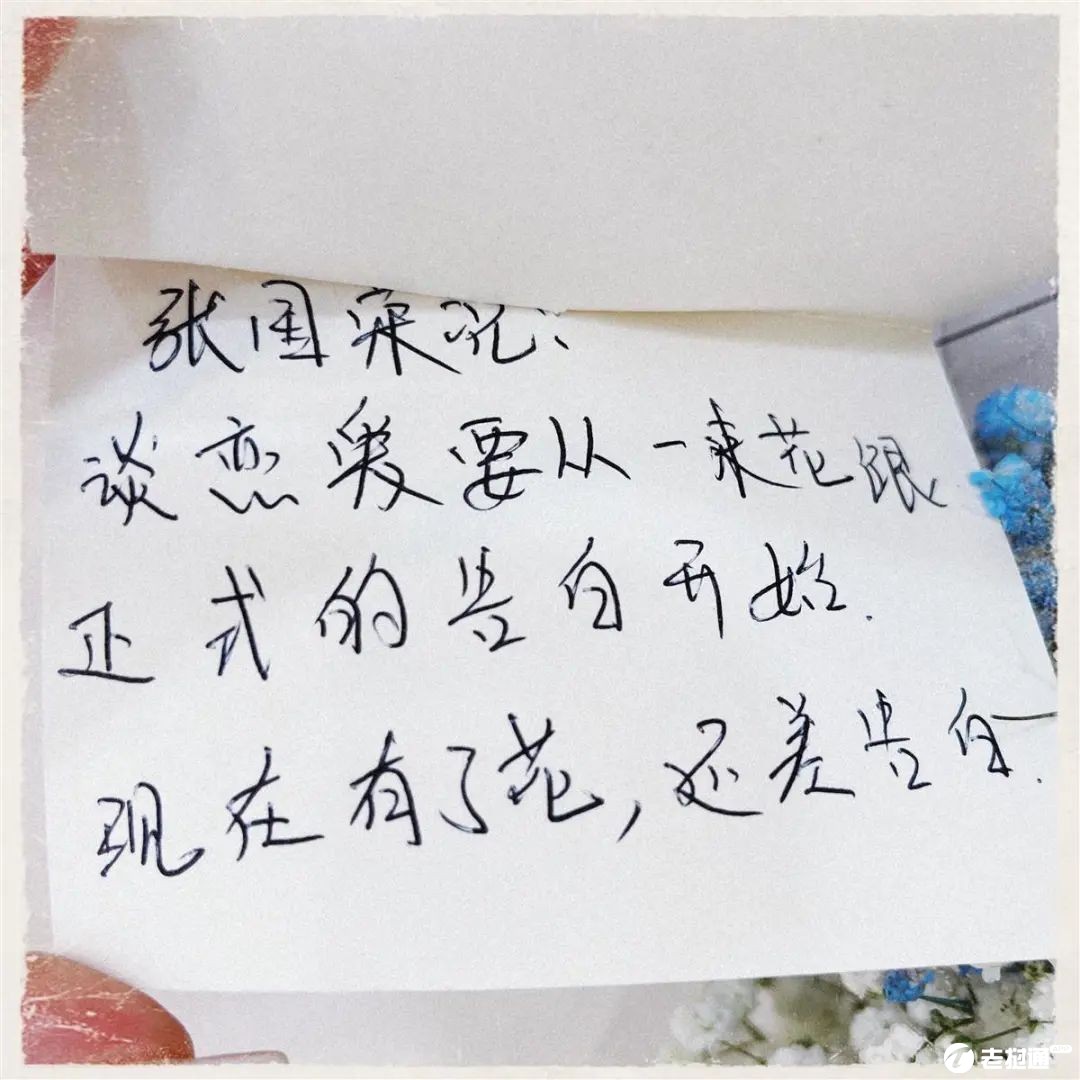 张国荣说:
谈恋爱要从一束花跟
正式的告白开始.
现在有了花,还差告白.
老抱通